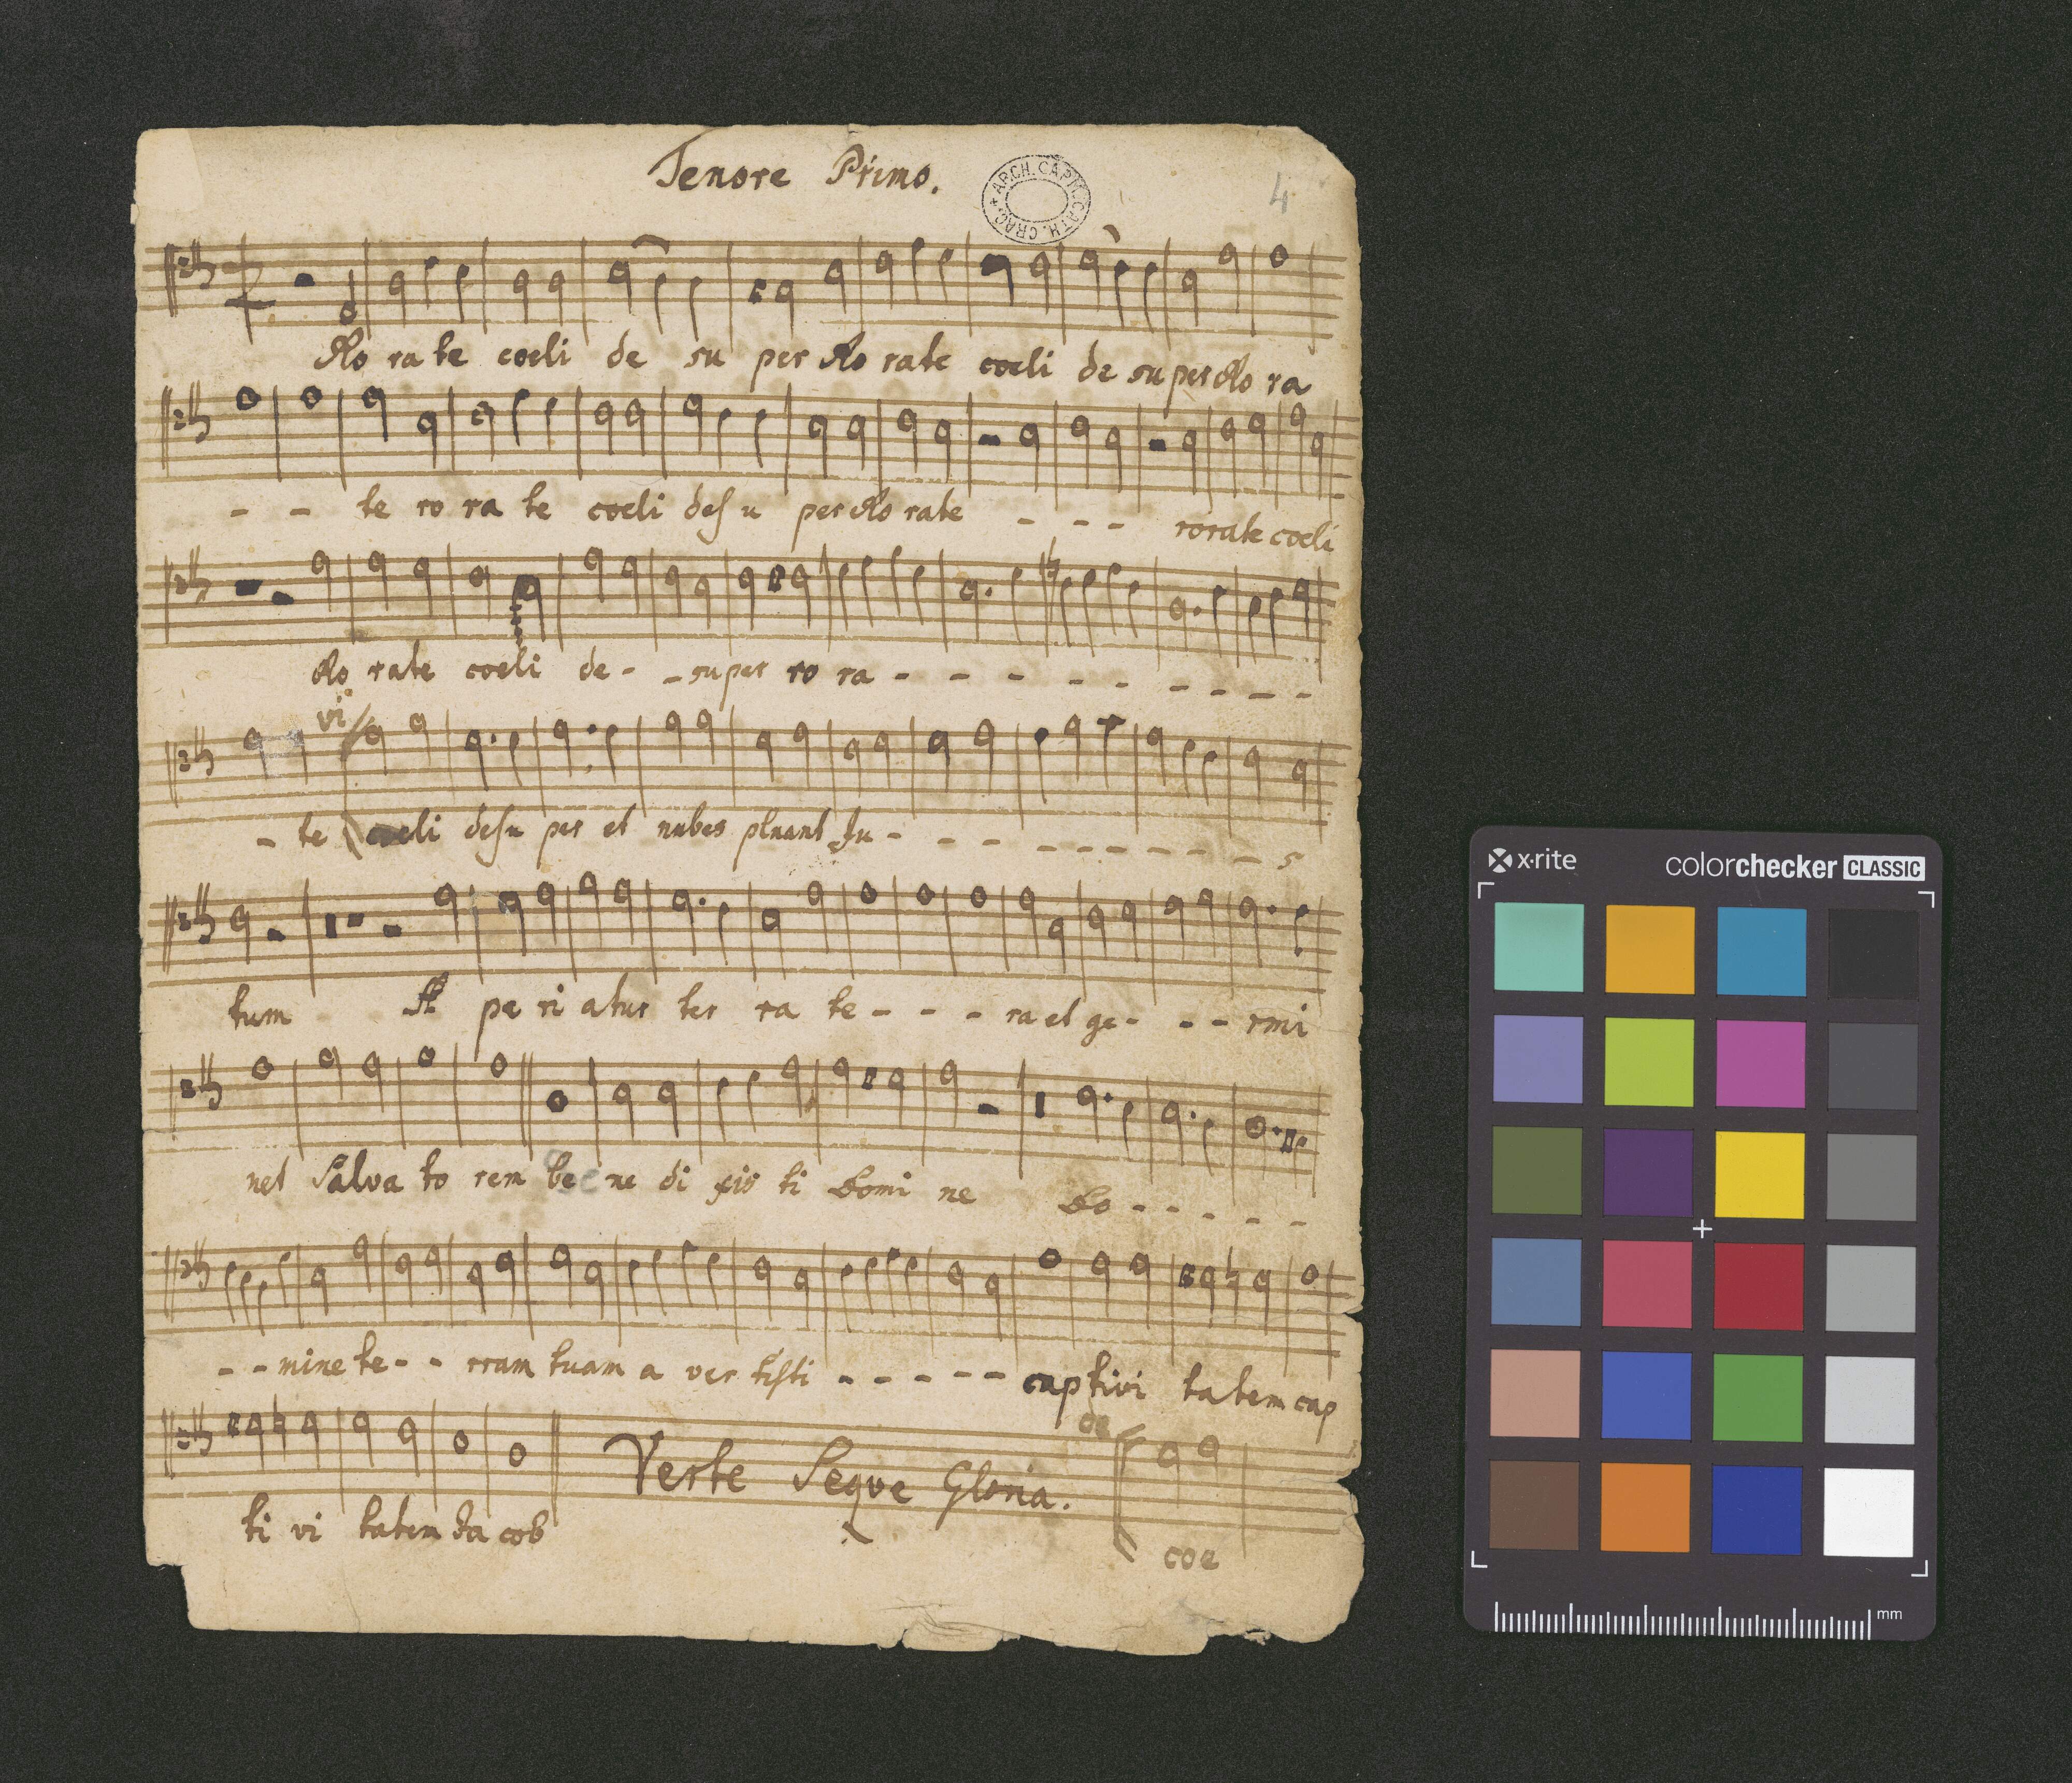 Tenore Primo.
ARCH. CAPIT. CATH. CRAC.
4
Ro ra te coeli de su per Ro rate coeli de super Ro ra
- - te ro ra te coeli desu per Ro rate - - - rorate coeli
Ro rate coeli de - - super ro ra - - - - - - - - -
vi
- te coeli desu per et nubes pluant Ju - - - - - - - - - s
tum A pe ri atur ter ra te - - - ra et ge - - - rmi
net Salva to rem be ne di xis ti Domi ne Do - - - - -
- - mine te - - rram tuam a ver tisti - - - - - captivi tatem cap
de
ti vi tatem Ja cob
Verte Seqve Gloria.
coe
x-rite
colorchecker CLASSIC
mm